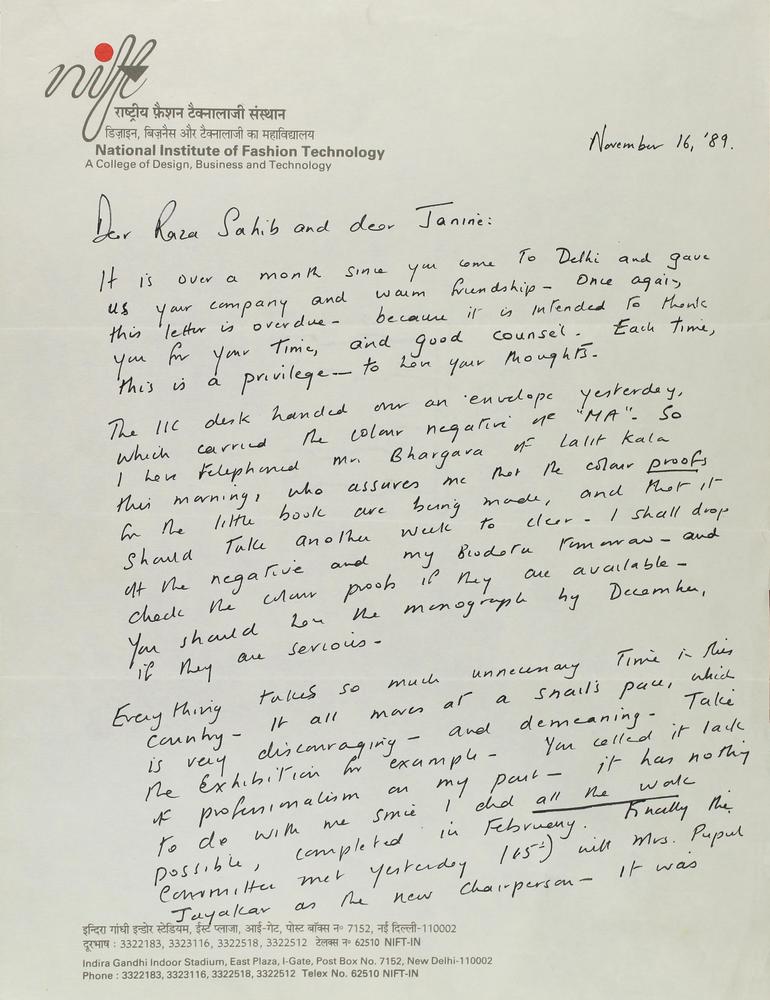 nift
राष्ट्रीय फ़ैशन टैक्नालाजी संस्थान
डिज़ाइन, बिज़नैस और टैक्नालाजी का महाविद्यालय
National Institute of Fashion Technology
A College of Design, Business and Technology
November 16, '89.
Dear Raza Sahib and dear Janine:
It is over a month since you come to Delhi and gave
us your company and warm friendship - Once again,
this letter is overdue - because it is intended to thank
you for your time, and good counsel. Each time,
this is a privilege — to have your thoughts -
The IIC desk handed over an envelope yesterday,
which carried the colour negative of "MA". So
I have telephoned Mr. Bhargava of Lalit Kala
this morning, who assures me that the colour proofs
for the little book are being made, and that it
should take another week to clear - I shall drop
off the negative and my Biodata tomorrow - and
check the colour proofs if they are available -
You should have the monograph by December,
if they are serious -
Everything takes so much unnecessary time in this
country - It all moves at a snail's pace, which
is very discouraging - and demeaning - Take
the Exhibition for example - You called it lack
of professionalism on my part - it has nothing
to do with me since I did all the work
possible, completed in February. Finally the
Committee met yesterday (15th) with Mrs. Pupul
Jayakar as the new Chairperson - It was
इन्दिरा गांधी इन्डोर स्टेडियम, ईस्ट प्लाजा, आई-गेट, पोस्ट बॉक्स नं० 7152, नई दिल्ली-110002
दूरभाष : 3322183, 3323116, 3322518, 3322512 टेलक्स नं० 62510 NIFT-IN
Indira Gandhi Indoor Stadium, East Plaza, I-Gate, Post Box No. 7152, New Delhi-110002
Phone : 3322183, 3323116, 3322518, 3322512 Telex No. 62510 NIFT-IN